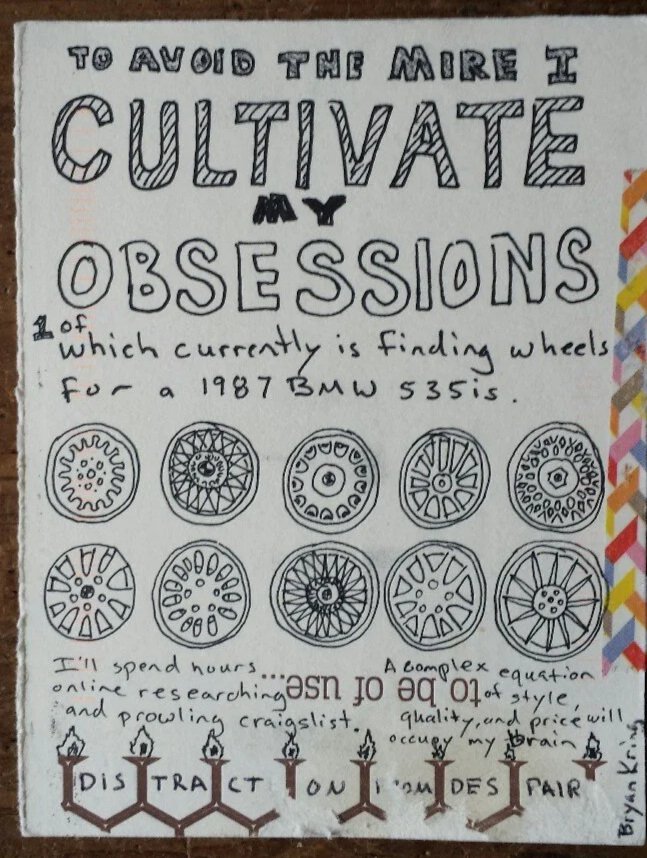 TO AVOID THE MIRE I
CULTIVATE
MY
OBSESSIONS
1 of
which currently is finding wheels
for a 1987 BMW 535is.
I'll spend hours
online researching
and prowling craigslist.
to be of use...
A complex equation
of style,
quality, and price will
occupy my brain
DISTRACT ON   OM DESPAIR
Bryan Kring